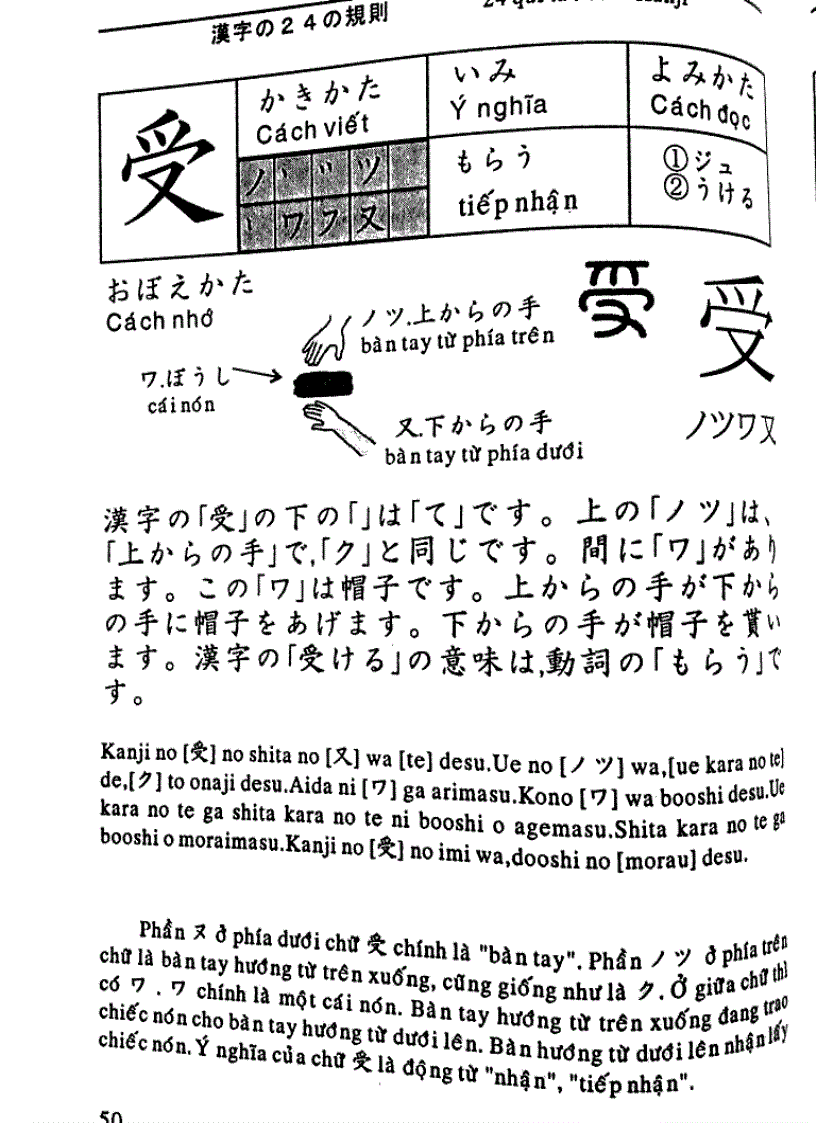 漢字の２４の規則
受
かきかた
Cách viết
いみ
Ý nghĩa
よみかた
Cách đọc
ノ 丶 ツ
ワ フ 又
もらう
tiếp nhận
①ジュ
②うける
おぼえかた
Cách nhớ
ノツ.上からの手
bàn tay từ phía trên
ワ.ぼうし
cái nón
又.下からの手
bàn tay từ phía dưới
受
受
ノツワ又
漢字の｢受｣の下の｢｣は｢て｣です。上の｢ノツ｣は、
｢上からの手｣で,｢ク｣と同じです。間に｢ワ｣があり
ます。この｢ワ｣は帽子です。上からの手が下から
の手に帽子をあげます。下からの手が帽子を貰い
ます。漢字の｢受ける｣の意味は,動詞の｢もらう｣で
す。
Kanji no [受] no shita no [又] wa [te] desu.Ue no [ノツ] wa,[ue kara no te]
de,[ク] to onaji desu.Aida ni [ワ] ga arimasu.Kono [ワ] wa booshi desu.Ue
kara no te ga shita kara no te ni booshi o agemasu.Shita kara no te ga
booshi o moraimasu.Kanji no [受] no imi wa,dooshi no [morau] desu.
Phần ヌ ở phía dưới chữ 受 chính là "bàn tay". Phần ノツ ở phía trên
chữ là bàn tay hướng từ trên xuống, cũng giống như là ク. Ở giữa chữ thì
có ワ . ワ chính là một cái nón. Bàn tay hướng từ trên xuống đang trao
chiếc nón cho bàn tay hướng từ dưới lên. Bàn hướng từ dưới lên nhận lấy
chiếc nón. Ý nghĩa của chữ 受 là động từ "nhận", "tiếp nhận".
50